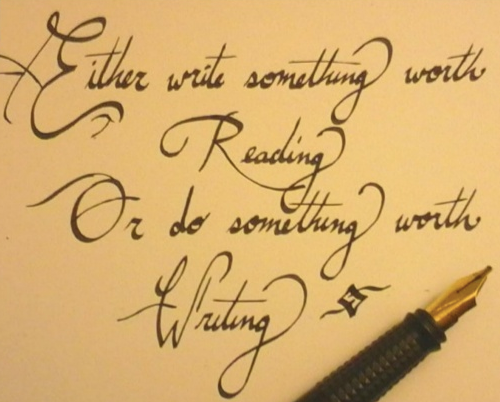 Either write something worth
Reading
Or do something worth
Writing